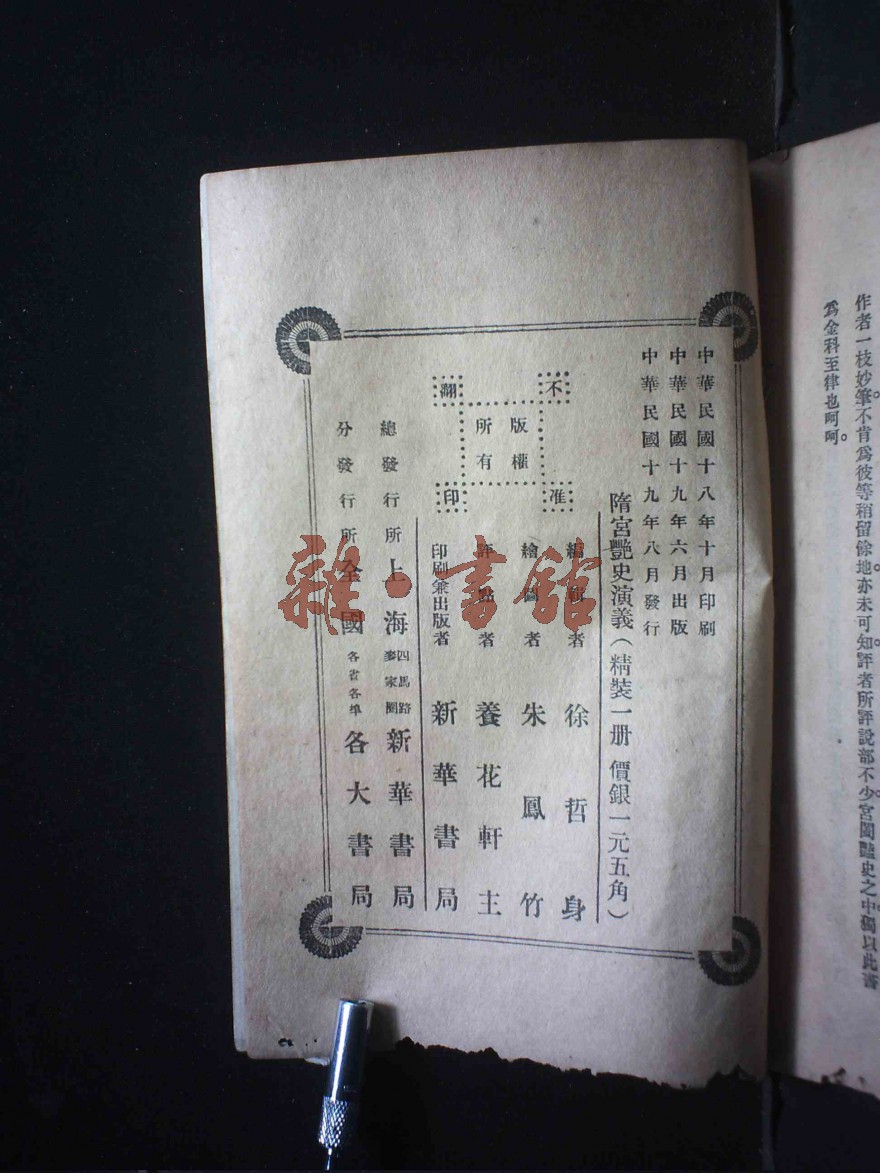 作者一枝妙筆。不肯爲彼等稍留餘地。亦未可知。評者所評說部不少。宮闈豔史之中。獨以此書
爲金科玉律也呵呵。
中華民國十八年十月印刷
中華民國十九年六月出版
中華民國十九年八月發行
隋宮艷史演義（精裝一册 價銀一元五角）
不准翻印
版權所有
編輯者 徐哲身
繪圖者 朱鳳竹
評點者 養花軒主
印刷兼出版者 新華書局
總發行所 上海四馬路麥家圈新華書局
分發行所 全國各省各埠各大書局
雜·書館